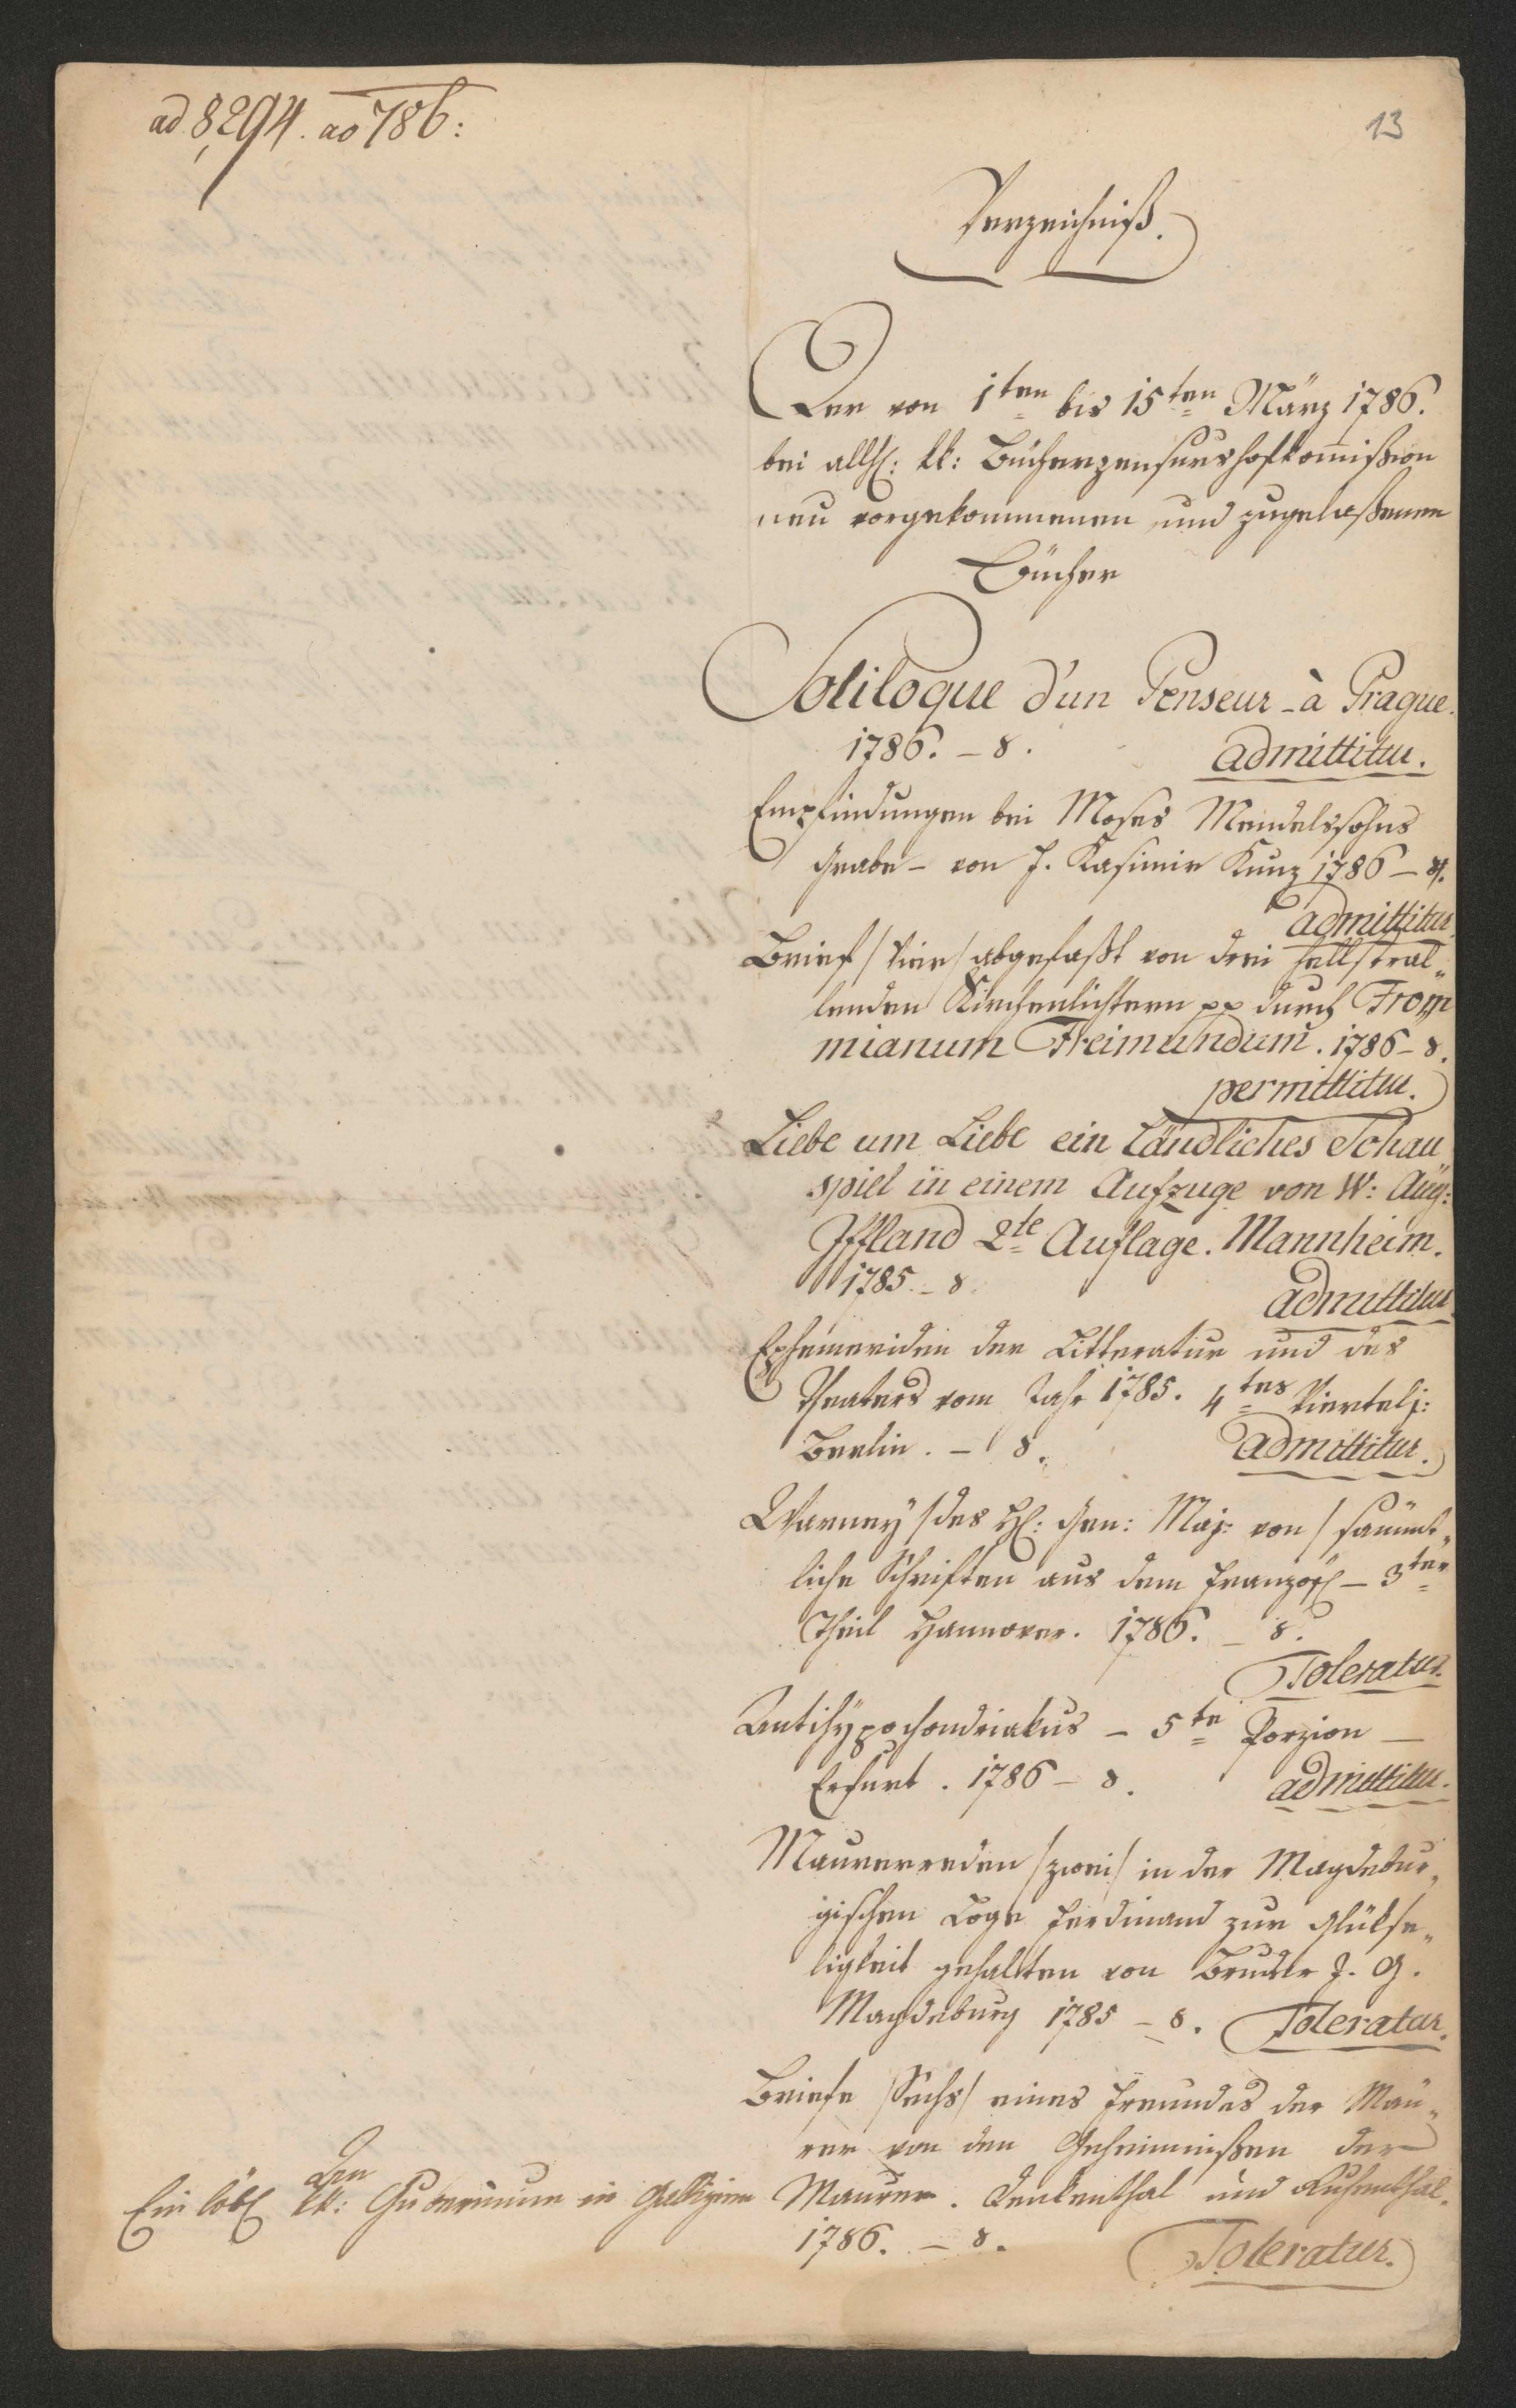 ad 8,294. ao 786:
13
Verzeichniß.
Der von 1ten bis 15ten März 1786.
bei allh: kk: Bücherzensurshofkommißion
neu vorgekommenen und zugelaßenen
Bücher
Soliloque d'un Penseur - à Prague.
1786. - 8.
admittitur.
Empfindungen bei Moses Mendelssohns
Grabe - von J. Kasimir Kunz 1786 - 8.
admittitur
Brief /Vier/ abgefaßt von drei hellstral„
lenden Kirchenlichtern pp durch From
mianum Freimundum. 1786 - 8.
permittitur.
Liebe um Liebe ein Ländliches Schau
spiel in einem Aufzuge von W: Aug:
Iffland 2te Auflage. Mannheim.
1785. - 8.
admittitur
Ephemeriden der Litteratur und des
Theaters vom Jahr 1785. 4tes Viertelj:
Berlin. - 8.
admittitur.
Warnery /des H: Gen: Maj: von/ sämmt„
liche Schriften aus dem Französ - 3ter
Theil Hannover. 1786. - 8.
Toleratur.
Antihypochondriakus - 5te Porzion -
Erfurt. 1786 - 8.
admittitur.
Maurerreden /zwei/ in der Magdebur„
gischen Loge Ferdinand zur Glükse„
ligkeit gehalten von Bruder J. G.
Magdeburg 1785 - 8. Toleratur.
Briefe /Sechs/ eines Freundes der Mau„
rer von den Geheimnißen der
Maurer. Denkenthal und Ruhenthal.
1786. - 8.
Toleratur.
Den
Ein löbl kk: Gubernium in Gallizien